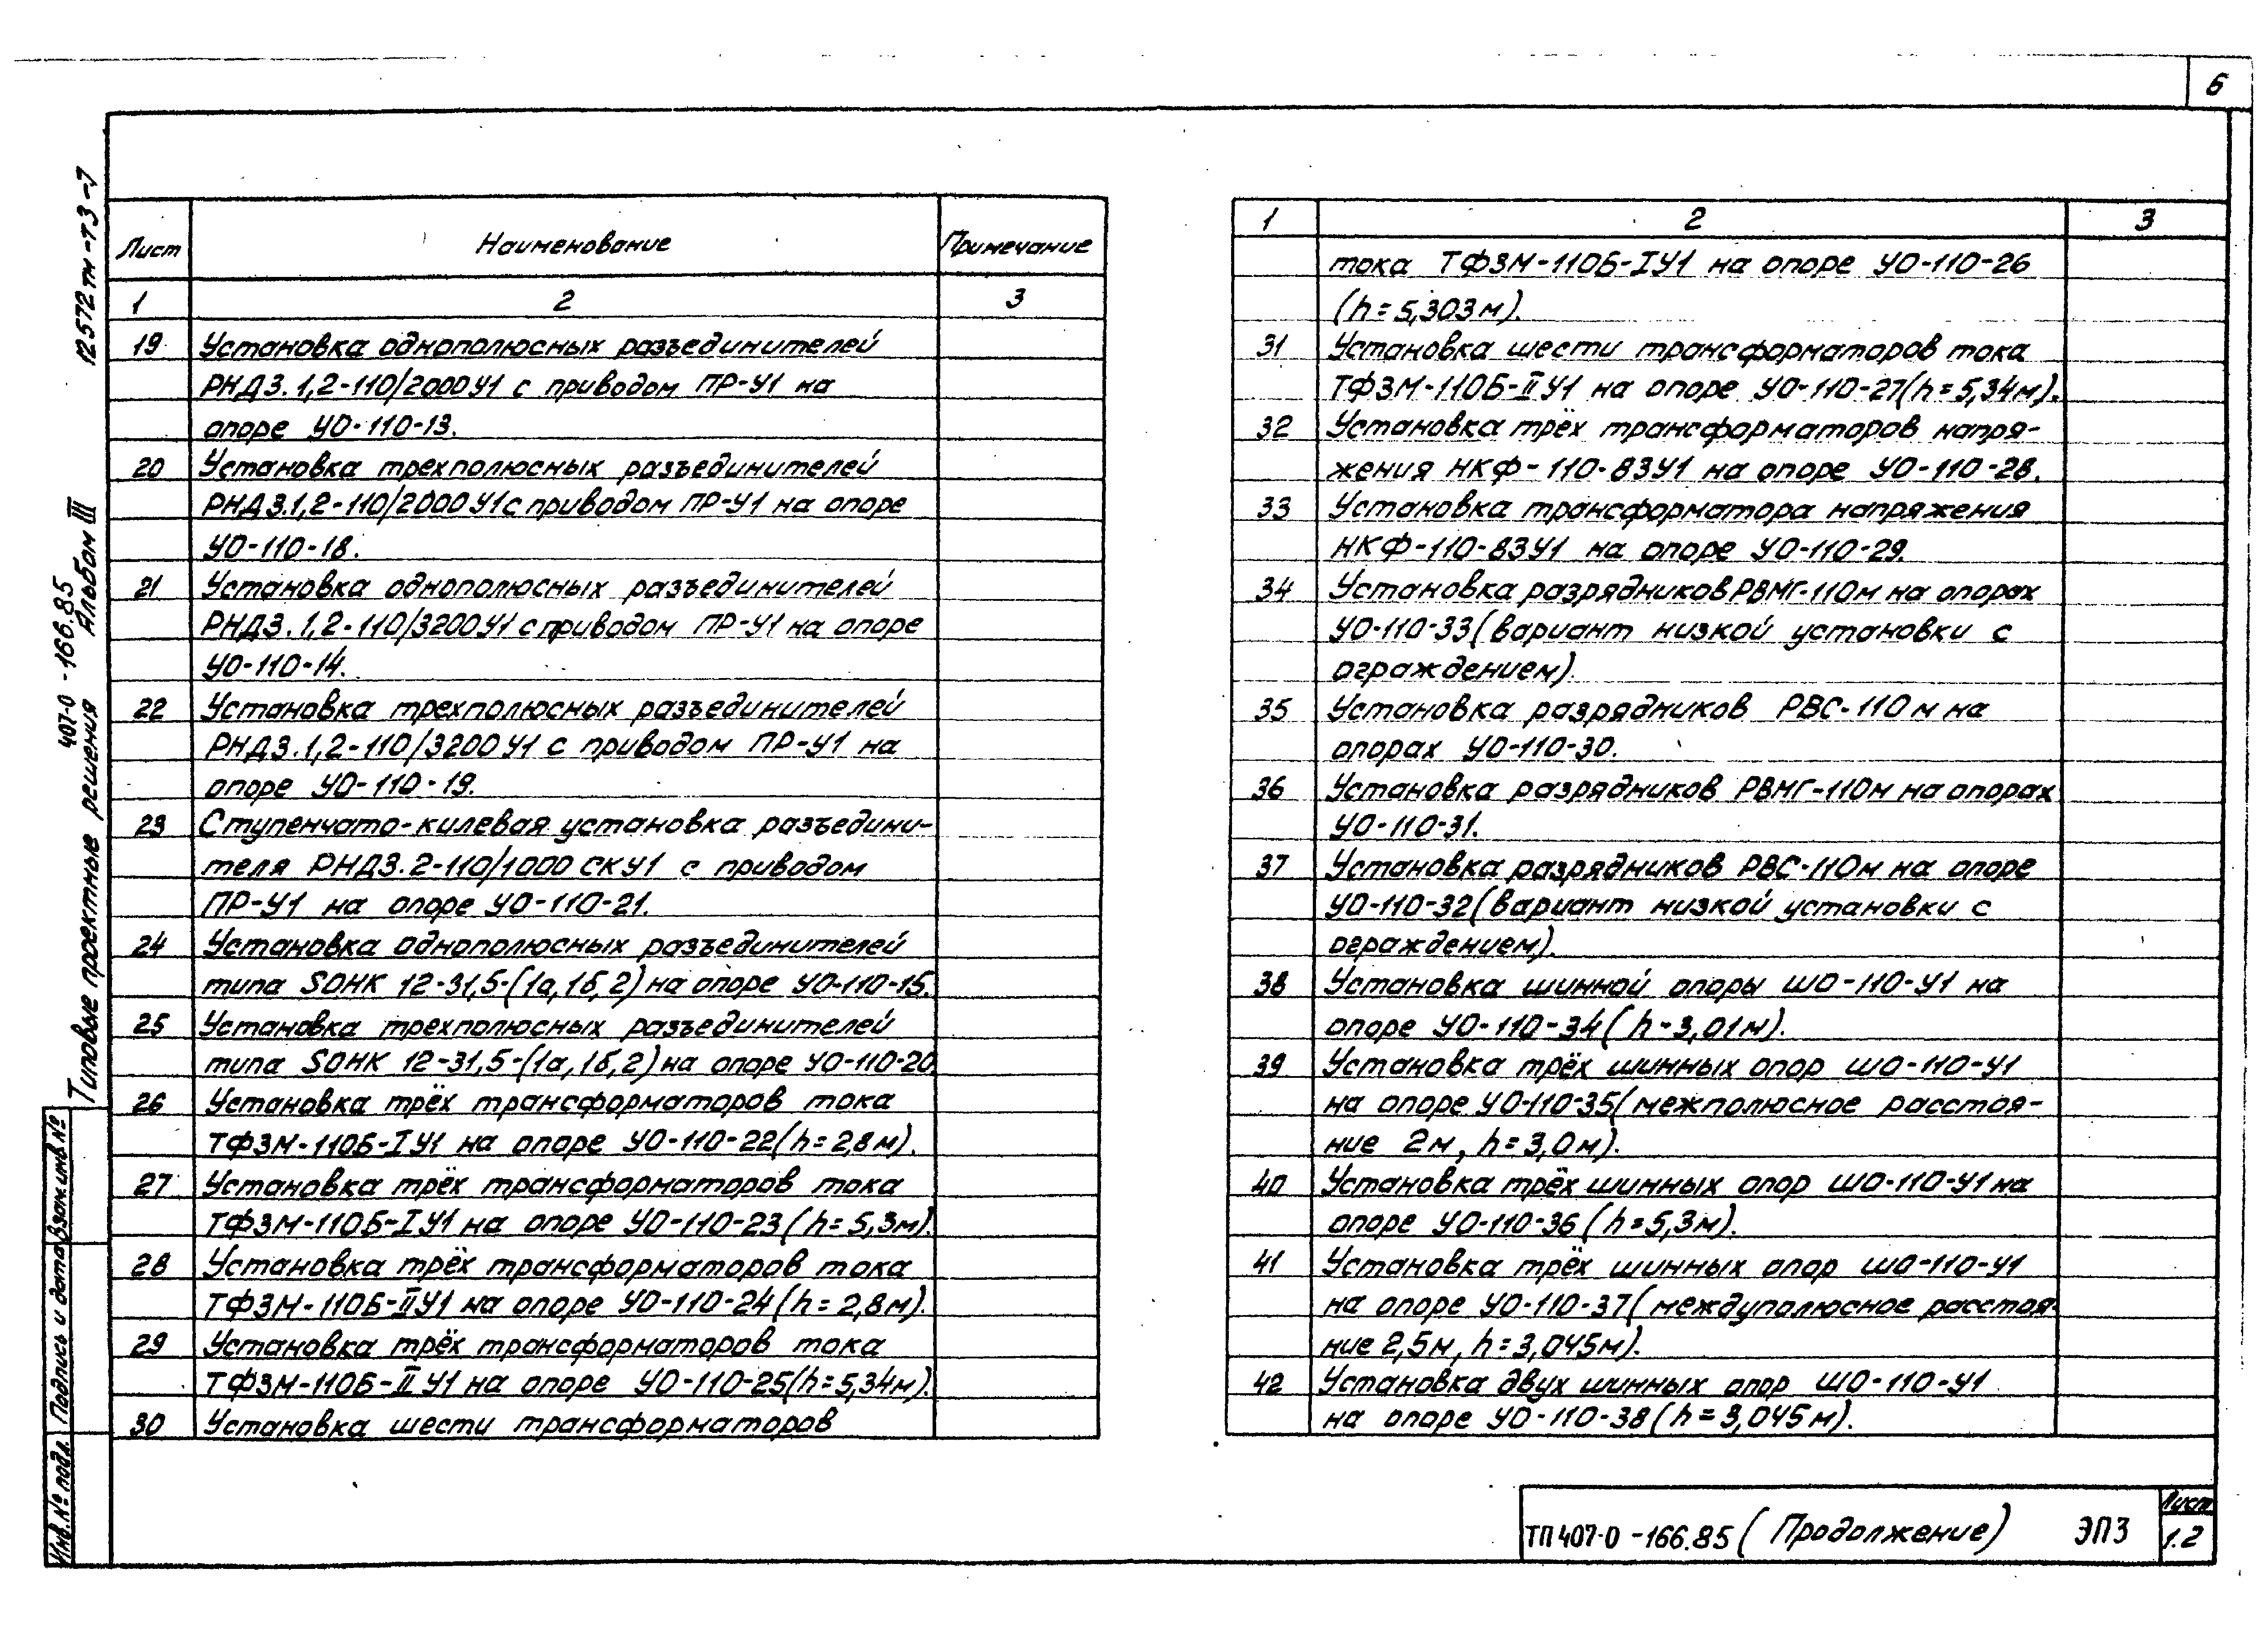 6
12572тм-Т3-7
Типовые проектные решения 407-0-166.85 Альбом III
Взам.инв.№
Подпись и дата
Инв.№ подл.
Лист Наименование Примечание
1 2 3
19 Установка однополюсных разъединителей
РНДЗ.1,2-110/2000У1 с приводом ПР-У1 на
опоре УО-110-13.
20 Установка трехполюсных разъединителей
РНДЗ.1,2-110/2000У1 с приводом ПР-У1 на опоре
УО-110-18.
21 Установка однополюсных разъединителей
РНДЗ.1,2-110/3200У1 с приводом ПР-У1 на опоре
УО-110-14.
22 Установка трехполюсных разъединителей
РНДЗ.1,2-110/3200У1 с приводом ПР-У1 на
опоре УО-110-19.
23 Ступенчато-килевая установка разъедини-
теля РНДЗ.2-110/1000 СКУ1 с приводом
ПР-У1 на опоре УО-110-21.
24 Установка однополюсных разъединителей
типа SОНК 12-31,5-(1а,1б,2) на опоре УО-110-15.
25 Установка трехполюсных разъединителей
типа SОНК 12-31,5-(1а,1б,2) на опоре УО-110-20.
26 Установка трёх трансформаторов тока
ТФЗМ-110Б-IУ1 на опоре УО-110-22(h=2,8м).
27 Установка трёх трансформаторов тока
ТФЗМ-110Б-IУ1 на опоре УО-110-23(h=5,3м).
28 Установка трёх трансформаторов тока
ТФЗМ-110Б-IIУ1 на опоре УО-110-24(h=2,8м).
29 Установка трёх трансформаторов тока
ТФЗМ-110Б-IIУ1 на опоре УО-110-25(h=5,34м).
30 Установка шести трансформаторов
1 2 3
тока ТФЗМ-110Б-IУ1 на опоре УО-110-26
(h=5,303м).
31 Установка шести трансформаторов тока
ТФЗМ-110Б-IIУ1 на опоре УО-110-27(h=5,34м).
32 Установка трёх трансформаторов напря-
жения НКФ-110-83У1 на опоре УО-110-28.
33 Установка трансформатора напряжения
НКФ-110-83У1 на опоре УО-110-29.
34 Установка разрядников РВМГ-110м на опорах
УО-110-33(вариант низкой установки с
ограждением).
35 Установка разрядников РВС-110м на
опорах УО-110-30.
36 Установка разрядников РВМГ-110м на опорах
УО-110-31.
37 Установка разрядников РВС-110м на опоре
УО-110-32(вариант низкой установки с
ограждением).
38 Установка шинной опоры ШО-110-У1 на
опоре УО-110-34(h-3,01м).
39 Установка трёх шинных опор ШО-110-У1
на опоре УО-110-35(межполюсное расстоя-
ние 2м, h=3,0м).
40 Установка трёх шинных опор ШО-110-У1 на
опоре УО-110-36(h=5,3м).
41 Установка трёх шинных опор ШО-110-У1
на опоре УО-110-37(междуполюсное расстоя-
ние 2,5м, h=3,045м).
42 Установка двух шинных опор ШО-110-У1
на опоре УО-110-38(h=3,045м).
ТП 407-0-166.85 (Продолжение) ЭПЗ
Лист
1.2